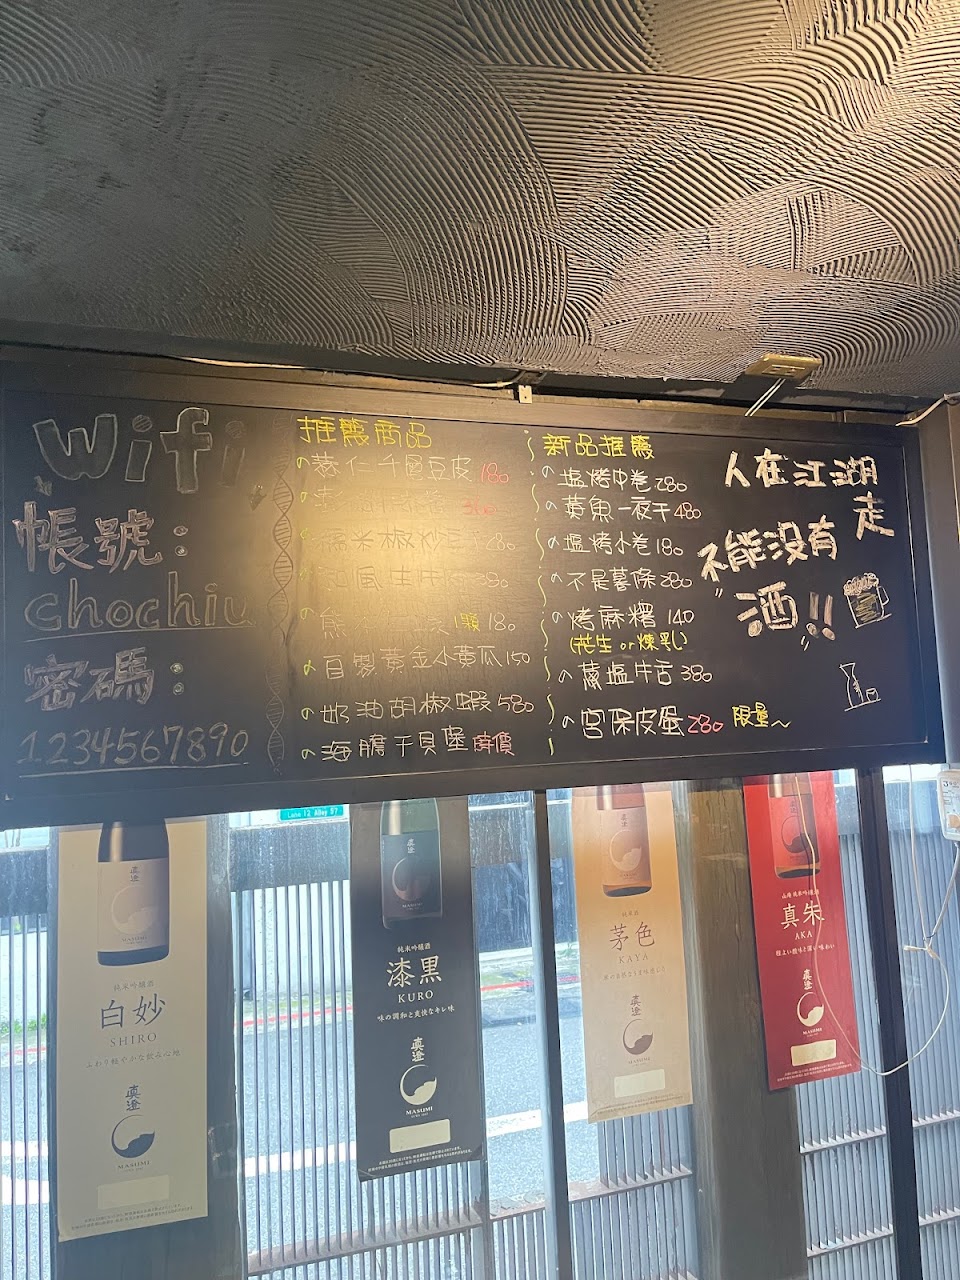 Wifi
帳號:
chochiu
密碼:
1234567890
推薦商品
薏仁千層豆皮 180
180
自製黃金小黃瓜 150
奶油胡椒蝦 580
海膽干貝堡 時價
新品推薦
塩烤中卷 280
黃魚一夜干 480
塩烤小卷 180
不是薯條 280
烤麻糬 140
(花生 or 煉乳)
蔥塩牛舌 380
宮保皮蛋 280 限量~
人在江湖
走
不能沒有
酒!!
Lane 12 Alley 97
真澄
純米吟醸酒
白妙
SHIRO
ふわり軽やかな飲み心地
真澄
MASUMI
真澄
純米吟醸酒
漆黒
KURO
味の調和と爽快なキレ味
真澄
MASUMI
真澄
純米酒
茅色
KAYA
真澄
MASUMI
山廃 純米吟醸酒
真朱
AKA
程よい酸味と深い味わい
真澄
MASUMI